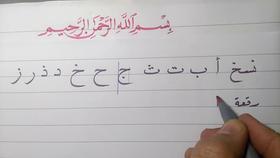 بسم الله الرحمن الرحيم
نسخ أ ب ت ث ج ح خ د ذ ر ز
رقعة